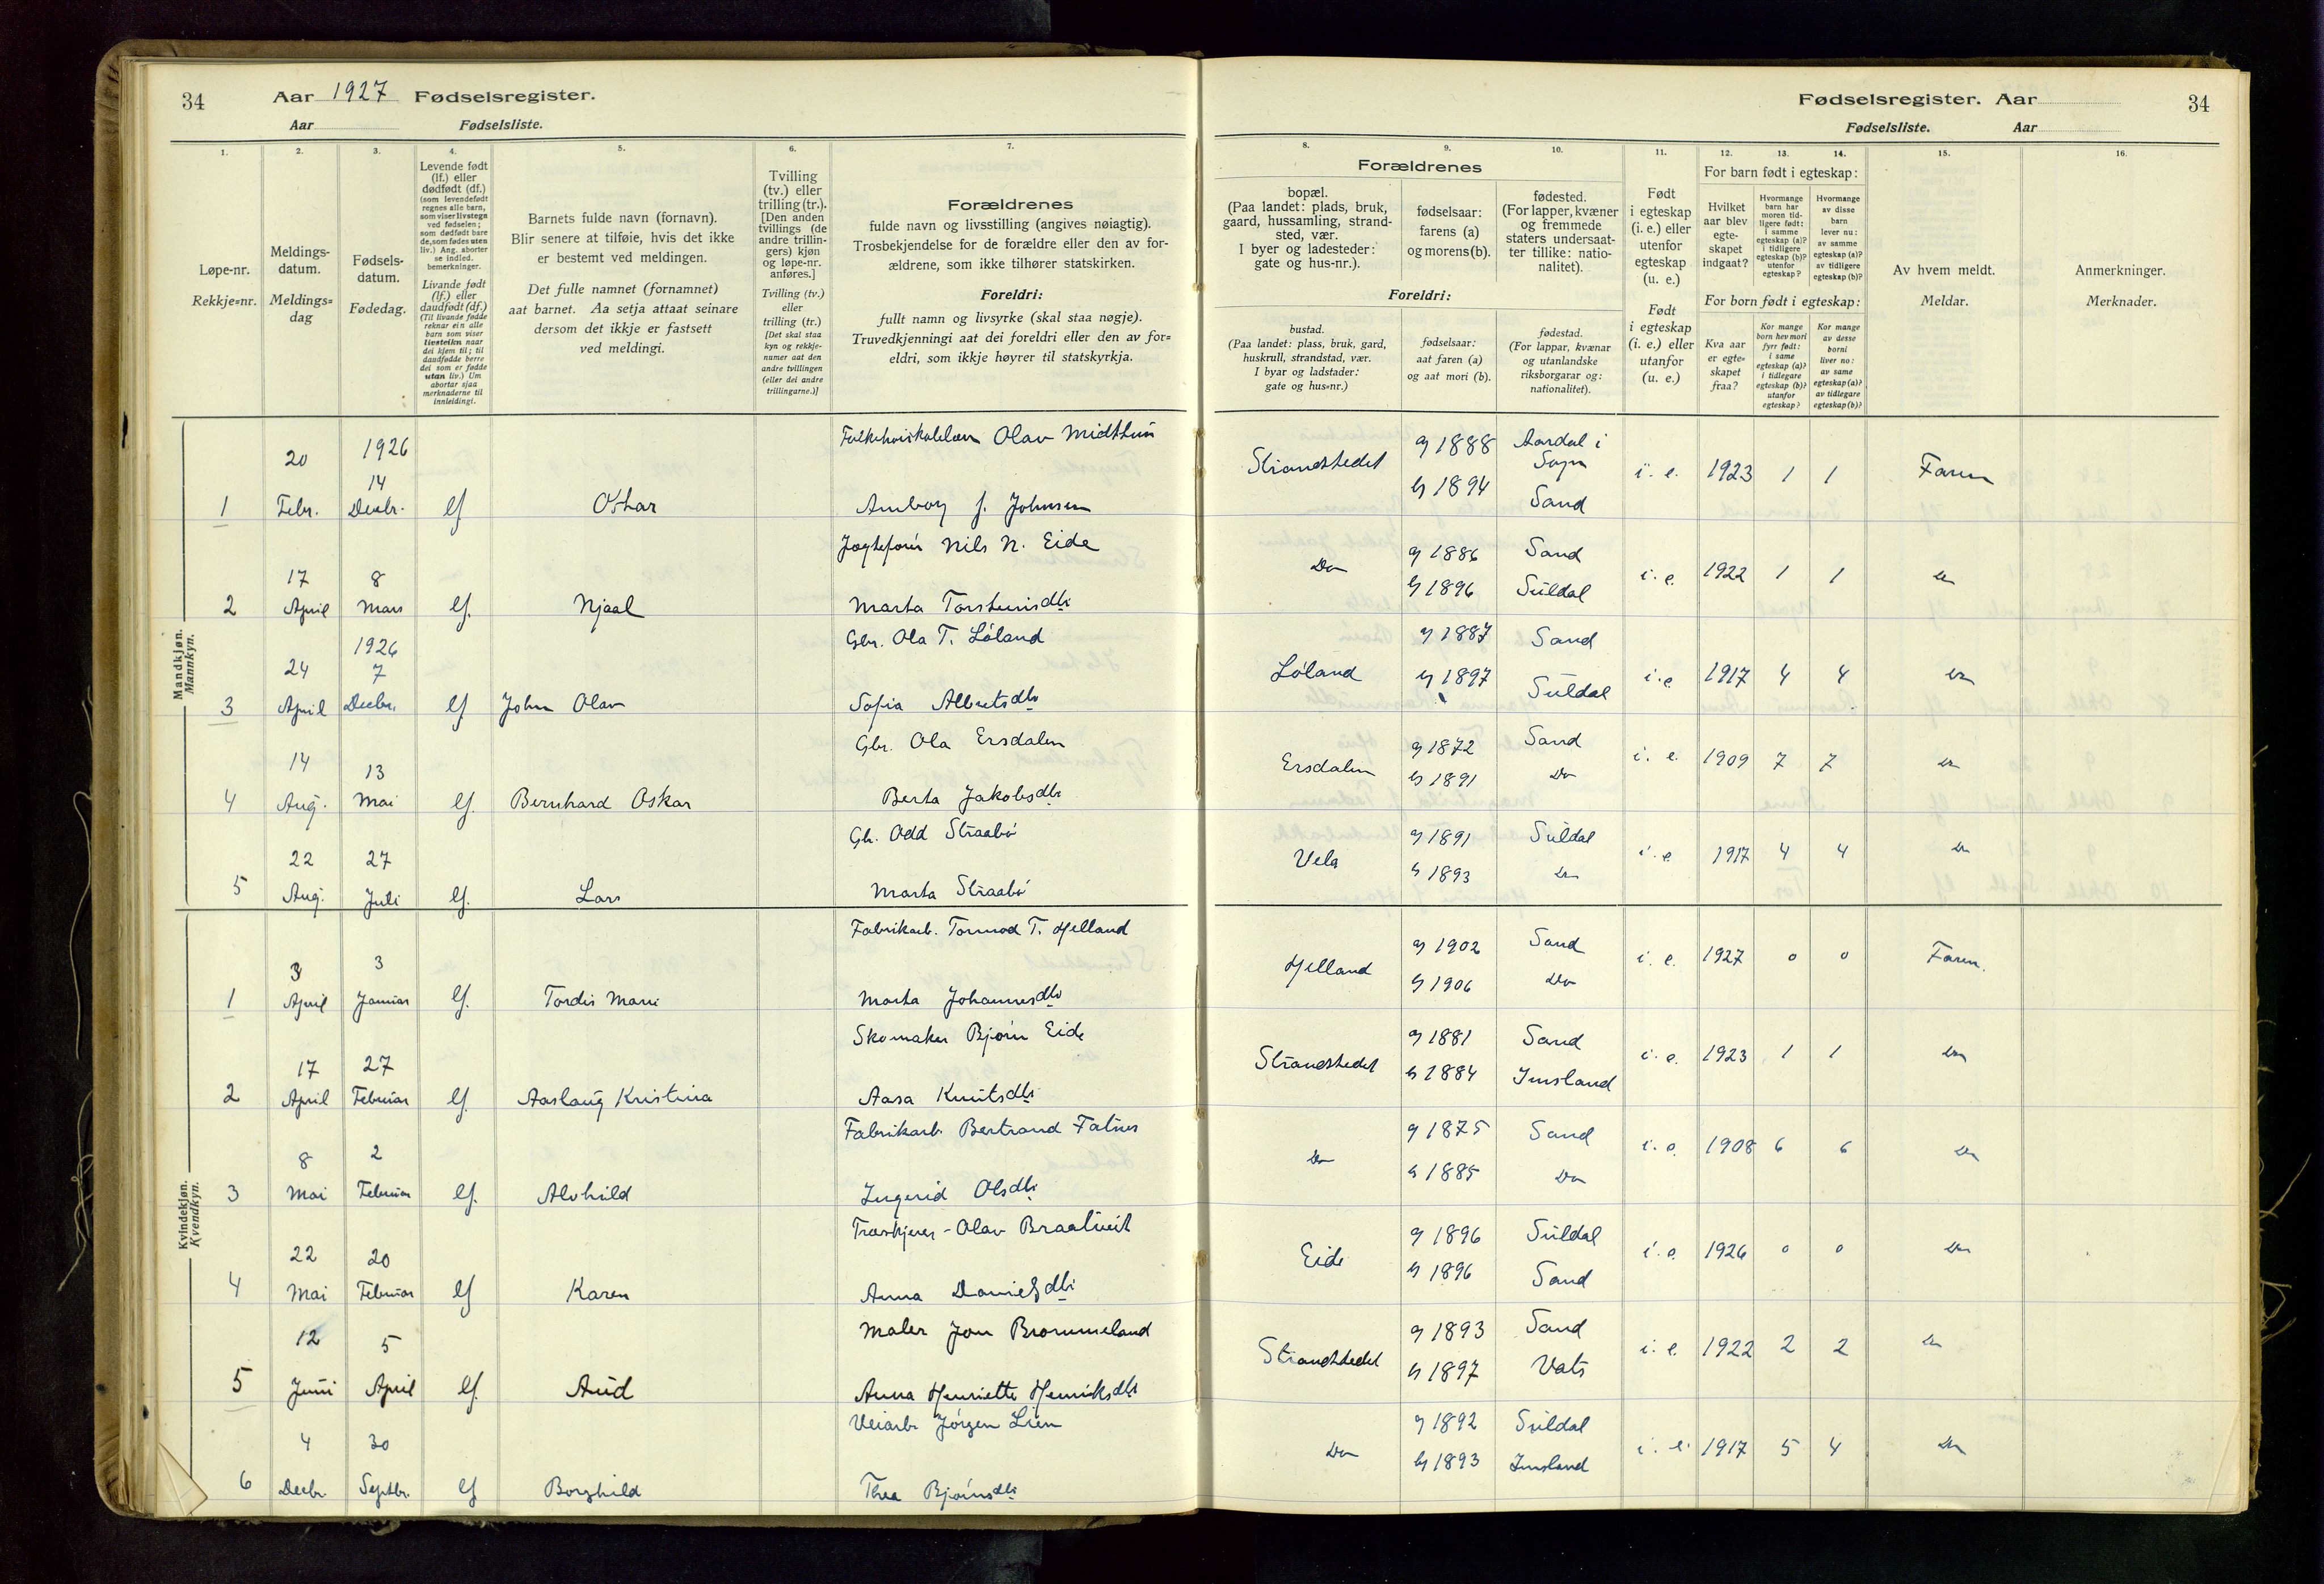 34
Aar 1927 Fødselsregister.
Aar Fødselsliste.
Fødselsregister. Aar
34
Fødselsliste. Aar
1.
Løpe-nr.
Rekkje=nr.
2.
Meldings-
datum.
Meldings=
dag
3.
Fødsels-
datum.
Fødedag.
4.
Levende født
(lf.) eller
dødfødt (df.)
(som levendefødt
regnes alle barn,
som viser livstegn
ved fødselen;
som dødfødt bare
de, som fødes uten
liv.) Ang. aborter
se indled.
bemerkninger.
Livande født
(lf.) eller
daudfødt (df.)
(Til livande fødde
reknar ein alle
barn som viser
livsteikn naar
dei kjem til; til
daudfødde berre
dei som er fødde
utan liv.) Um
abortar sjaa
merknaderne til
innleidingi.
5.
Barnets fulde navn (fornavn).
Blir senere at tilføie, hvis det ikke
er bestemt ved meldingen.
Det fulle namnet (fornamnet)
aat barnet. Aa setja attaat seinare
dersom det ikkje er fastsett
ved meldingi.
6.
Tvilling
(tv.) eller
trilling (tr.).
[Den anden
tvillings (de
andre trillin-
gers) kjøn
og løpe-nr.
anføres.]
Tvilling (tv.)
eller
trilling (tr.)
[Det skal staa
kyn og rekkje-
numer aat den
andre tvillingen
(eller dei andre
trillingarne.)]
7.
Forældrenes
fulde navn og livsstilling (angives nøiagtig).
Trosbekjendelse for de forældre eller den av for-
ældrene, som ikke tilhører statskirken.
Foreldri:
fullt namn og livsyrke (skal staa nøgje).
Truvedkjenningi aat dei foreldri eller den av for=
eldri, som ikkje høyrer til statskyrkja.
8.
Forældrenes
bopæl.
(Paa landet: plads, bruk,
gaard, hussamling, strand-
sted, vær.
I byer og ladesteder:
gate og hus-nr.).
Foreldri:
bustad.
(Paa landet: plass, bruk, gard,
huskrull, strandstad, vær.
I byar og ladstader:
gate og hus=nr.)
9.
fødselsaar:
farens (a)
og morens (b).
fødselsaar:
aat faren (a)
og aat mori (b).
10.
fødested.
(For lapper, kvæner
og fremmede
staters undersaat-
ter tillike: natio-
nalitet).
fødestad.
(For lappar, kvænar
og utanlandske
riksborgarar og:
nationalitet).
11.
Født
i egteskap
(i. e.) eller
utenfor
egteskap
(u. e.)
Født
i egteskap
(i. e.) eller
utanfor
(u. e.)
12. 13. 14.
For barn født i egteskap:
Hvilket
aar blev
egte-
skapet
indgaat?
Hvormange
barn har
moren tid-
ligere født:
i samme
egteskap (a)?
i tidligere
egteskap (b)?
utenfor
egteskap?
Hvormange
av disse
barn
lever nu:
av samme
egteskap (a)?
av tidligere
egteskap (b)?
For born født i egteskap:
Kva aar
er egte=
skapet
fraa?
Kor mange
born hev mori
fyrr født:
i same
egteskap (a)?
i tidlegare
egteskap (b)?
utanfor
egteskap?
Kor mange
av desse
borni
liver no:
av same
egteskap (a)?
av tidlegare
egteskap (b)?
15.
Av hvem meldt.
Meldar.
16.
Anmerkninger.
Merknader.
Mandkjøn.
Mannkyn.
1 20 Febr. 1926 14 Decbr. lf Oskar
Olav Midttun
Amborg J. Johnsen
Strandstedet a 1888 Aardal i Sogn i. e. 1923 1 1 Faren
b 1894 Sand
2 17 April 8 Mars lf. Njaal
Jægtefører Nils N. Eide
Marta Torsteinsdtr
Do a 1886 Sand i. e. 1922 1 1 Do
b 1896 Suldal
3 24 April 1926 7 Decbr. lf John Olav
Gbr. Ola T. Løland
Sofia Albretsdtr
Løland a 1887 Sand i. e. 1917 4 4 Do
b 1897 Suldal
4 14 Aug. 13 Mai lf. Bernhard Oskar
Gbr. Ola Ersdalen
Berta Jakobsdtr
Ersdalen a 1872 Sand i. e. 1909 7 7 Do
b 1891 Do
5 22 Aug. 27 Juli lf. Lars
Gbr. Odd Straabø
Marta Straabø
Vela a 1891 Suldal i. e. 1917 4 4 Do
b 1893 Do
Kvindekjøn.
Kvendkyn.
1 3 April 3 Januar lf. Tordis Marie
Fabrikarb. Tormod T. Helland
Marta Johannesdtr
Helland a 1902 Sand i. e. 1927 0 0 Faren.
b 1906 Do
2 17 April 27 Februar lf. Aaslaug Kristina
Skomaker Bjørn Eide
Aasa Knutsdtr
Strandstedet a 1881 Sand i. e. 1923 1 1 Do
b 1884 Imsland
3 8 Mai 2 Februar lf. Alvhild
Fabrikarb. Bertrand Fatnes
Ingerid Olsdtr
Do a 1875 Sand i. e. 1908 6 6 Do
b 1885 Do
4 22 Mai 20 Februar lf Karen
Træskjærer - Olav Braatveit
Anna Danielsdtr
Eide a 1896 Suldal i. e. 1926 0 0 Do
b 1896 Sand
5 12 Juni 5 April lf. Aud
Maler Jon Brommeland
Anna Henriette Henriksdtr
Strandstedet a 1893 Sand i. e. 1922 2 2 Do
b 1897 Vats
6 4 Decbr. 30 Septbr. lf Borghild
Veiarb. Jørgen Lien
Thea Bjørnsdtr
Do a 1892 Suldal i. e. 1917 5 4 Do
b 1893 Imsland